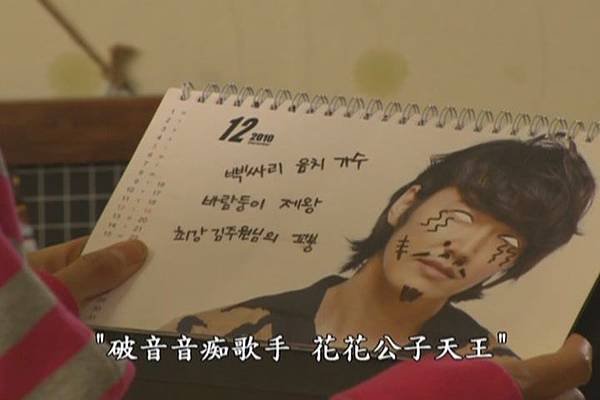 12 2010
삑싸리 음치 가수
바람둥이 제왕
최강 김주원님의 꼬붕
"破音音痴歌手 花花公子天王"